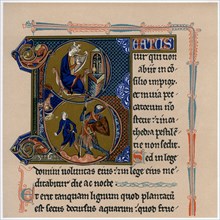 BEATUS
vir qui non
abiit in cō
silio impior̄
et in uia pec
catorum nō
stetit: et in ca
thedra pestilē
tie non sedit.
Sed in lege
domini voluntas eius: et in lege eius me
ditabitur die ac nocte
Et erit tanquam lignum quod plantatū
est secus decursus aquarum: quod fruc